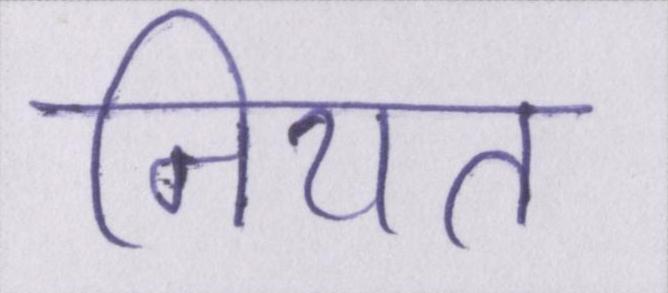 नियत